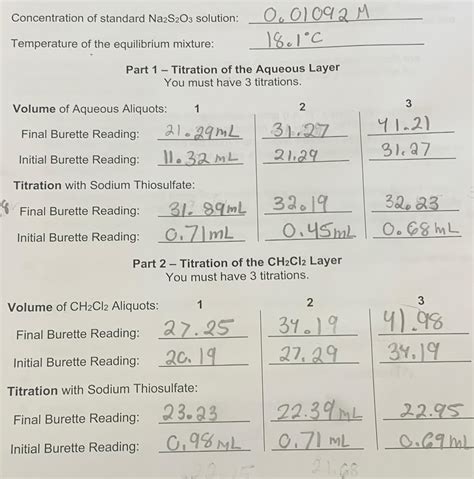 Concentration of standard Na2S2O3 solution: 0.01092 M
Temperature of the equilibrium mixture: 18.1°C
Part 1 – Titration of the Aqueous Layer
You must have 3 titrations.
Volume of Aqueous Aliquots: 1 2 3
Final Burette Reading: 21.29mL 31.27 41.21
Initial Burette Reading: 11.32 mL 21.29 31.27
Titration with Sodium Thiosulfate:
Final Burette Reading: 31.89mL 32.19 32.23
Initial Burette Reading: 0.71mL 0.45mL 0.68mL
Part 2 – Titration of the CH2Cl2 Layer
You must have 3 titrations.
Volume of CH2Cl2 Aliquots: 1 2 3
Final Burette Reading: 27.25 34.19 41.98
Initial Burette Reading: 20.19 27.29 34.19
Titration with Sodium Thiosulfate:
Final Burette Reading: 23.23 22.39 mL 22.95
Initial Burette Reading: 0.98mL 0.71 mL 0.69mL
21.68